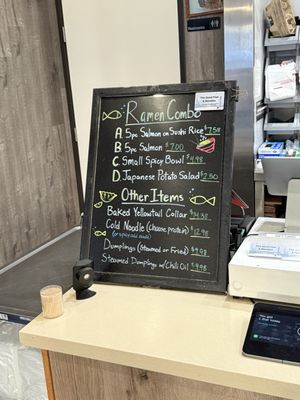 Restrooms
Ramen Combo
A 5pc Salmon on Sushi Rice $7.50
B 5pc Salmon $7.00
C Small Spicy Bowl $4.95
D Japanese Potato Salad $2.50
Other Items
Baked Yellowtail Collar $14.95
Cold Noodle (Choose protein) $12.98
Dumplings (Steamed or Fried) $9.98
Steamed Dumpling w/ Chili Oil $4.98